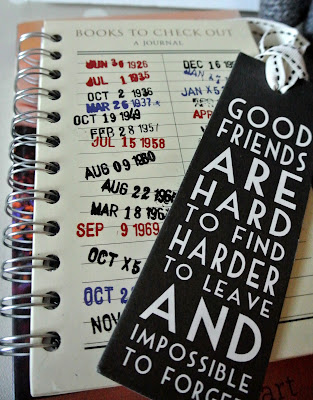 BOOKS TO CHECK OUT
A JOURNAL
JUN 30 1926
JUL 1 1935
OCT 2 1936
MAR 26 1937
OCT 19 1949
FEB 28 1957
JUL 15 1958
AUG 09 1960
AUG 22
MAR 18
SEP 9 1969
OCT X5
OCT 2
NOV
DEC 16
JAN
JAN X5
APR
GOOD
FRIENDS
ARE
HARD
TO FIND
HARDER
TO LEAVE
AND
IMPOSSIBLE
TO FORGE
art